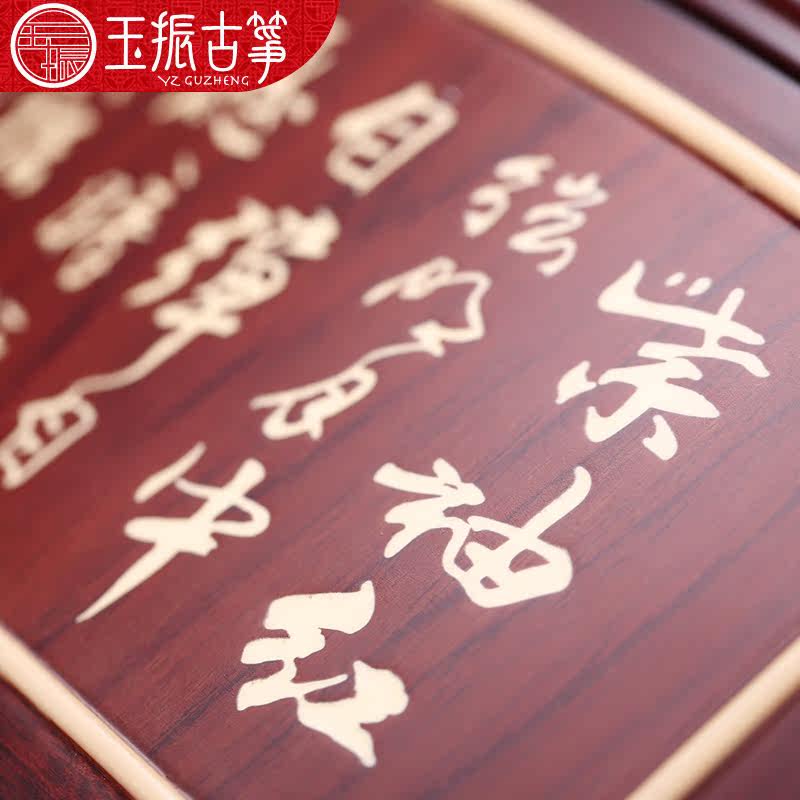 玉振古筝
YZ GUZHENG
紫袖红
弦明月中
自弹自